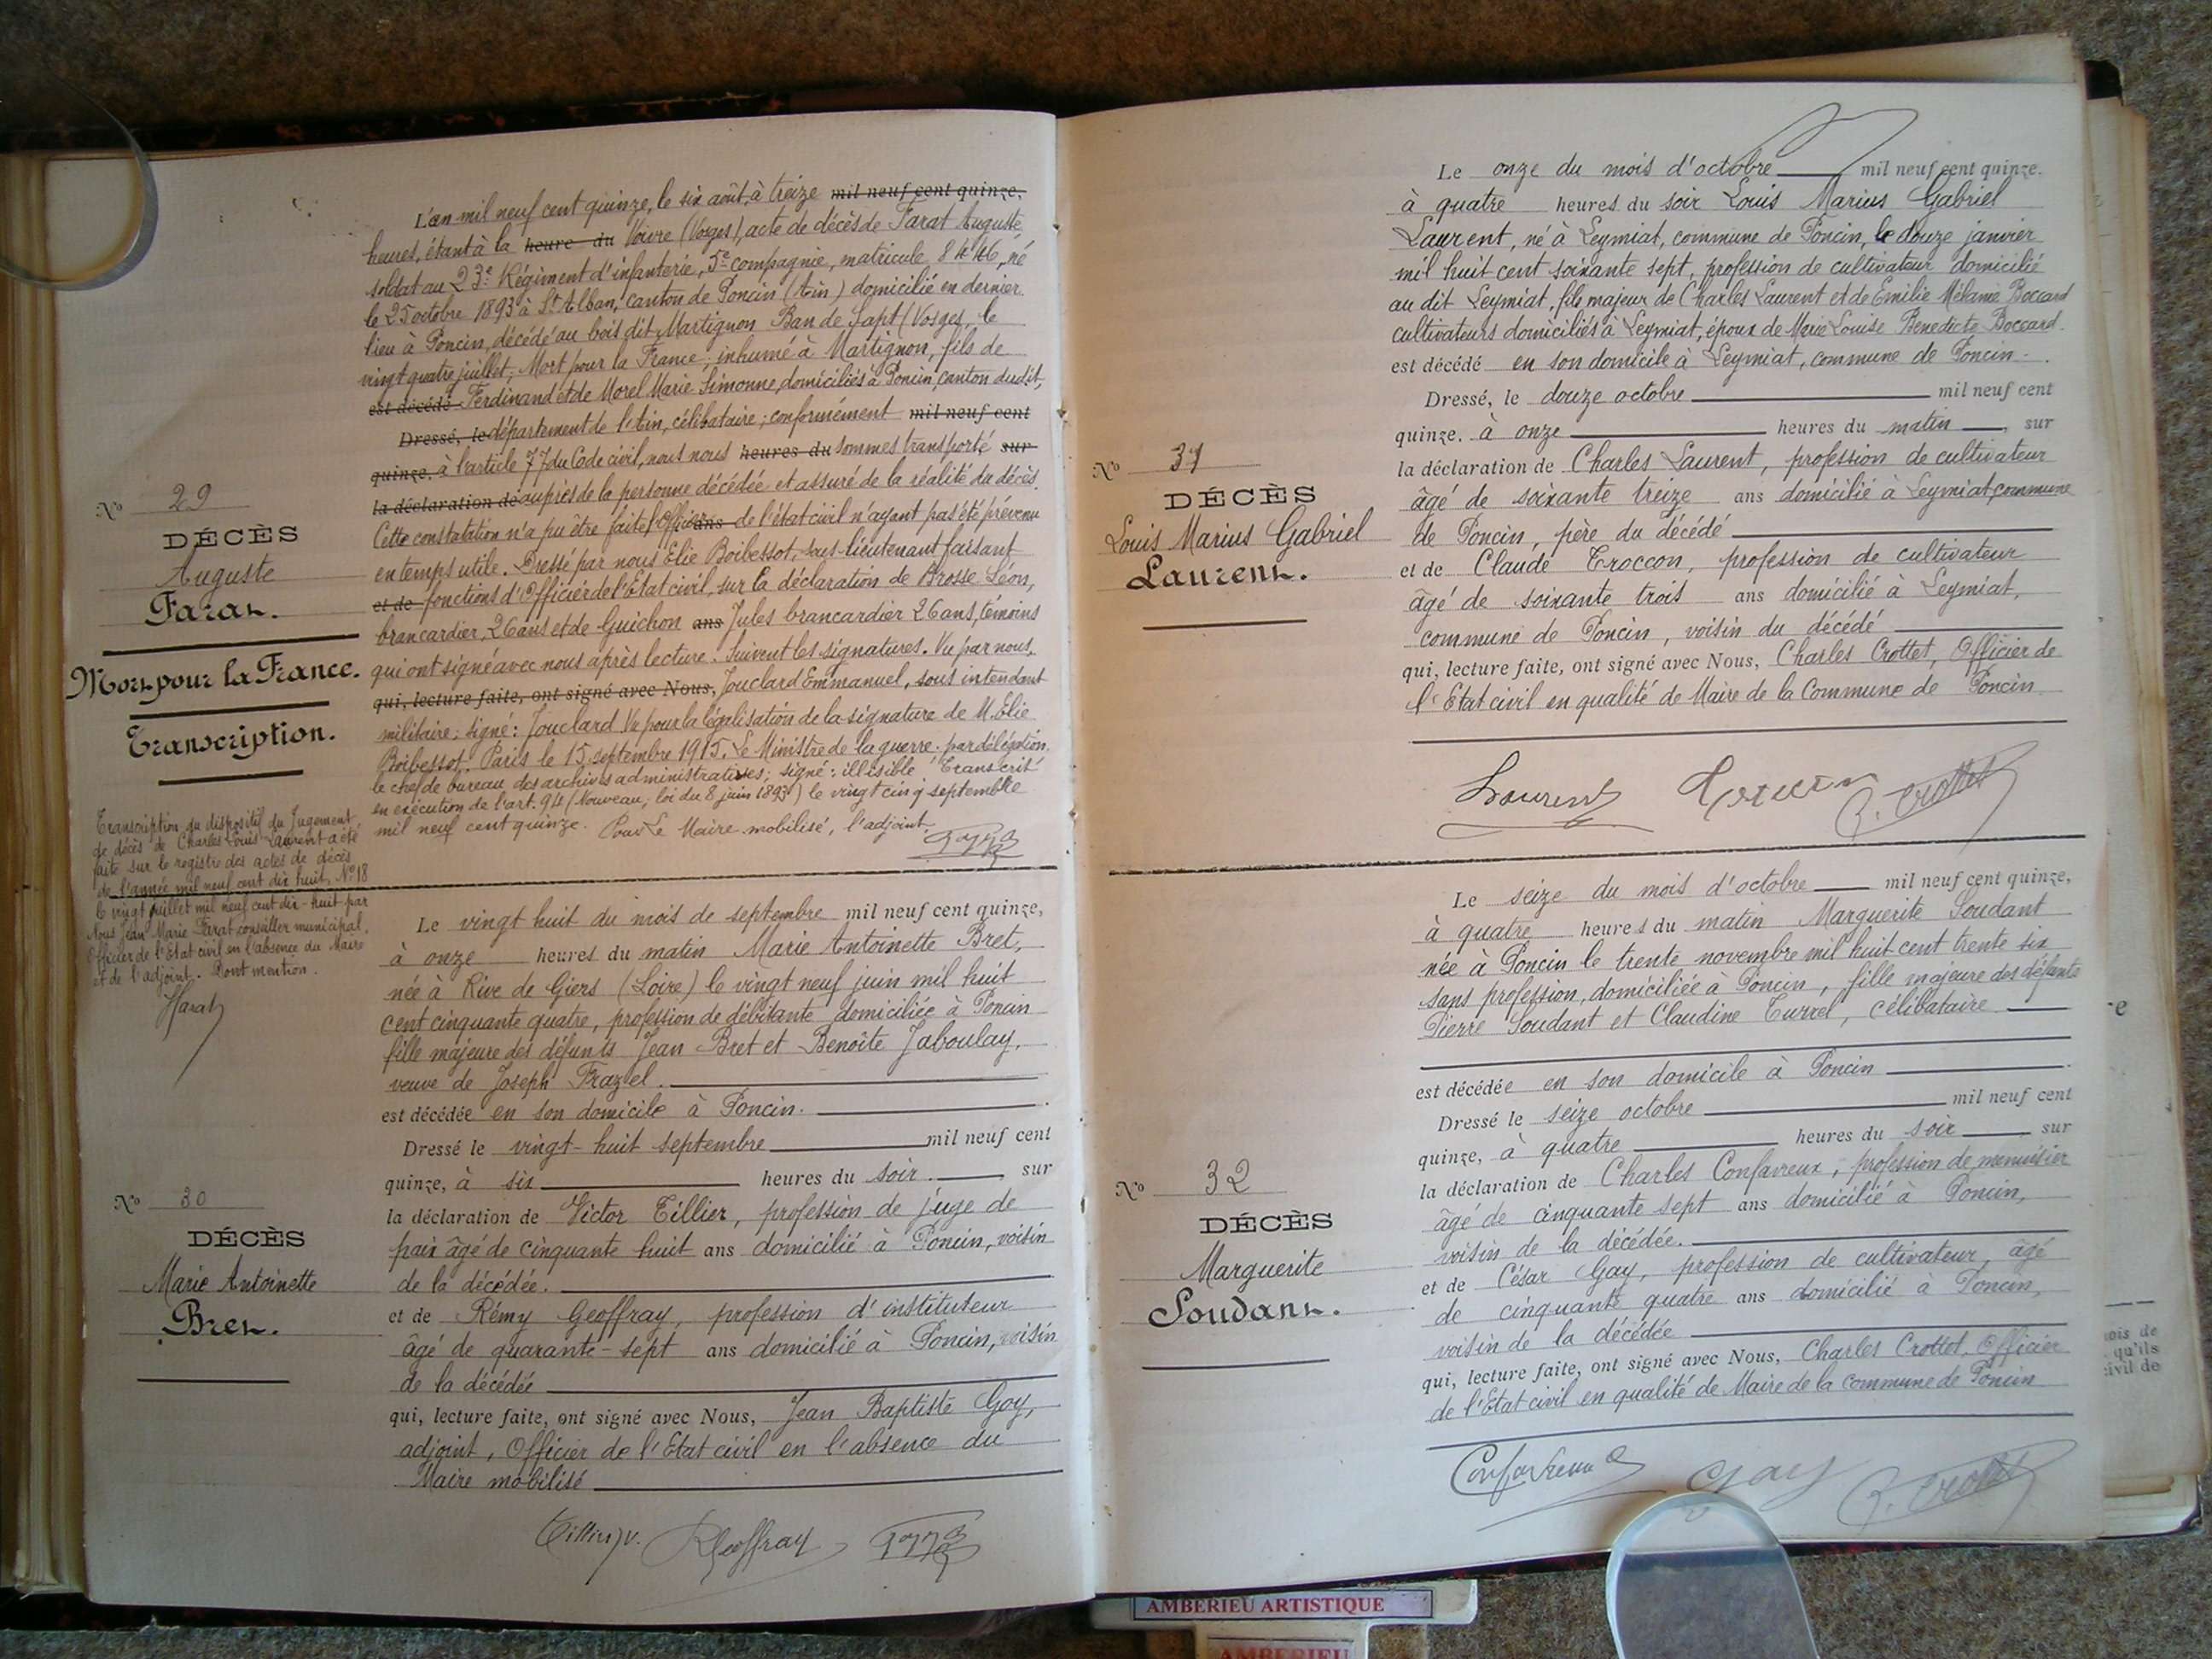 N° 29
DÉCÈS
Auguste
Farat.
Mort pour la France.
Transcription.
L'an mil neuf cent quinze, le six août, à treize mil neuf cent quinze,
heures, étant à la heure du Voivre (Vosges), acte de décès de Farat Auguste
soldat au 23e Régiment d'infanterie, 5e compagnie, matricule 8446, né
le 25 octobre 1893 à St Alban, canton de Poncin (Ain) domicilié en dernier
lieu à Poncin, décédé au bois dit Martignon Ban de Sapt (Vosges, le
vingt quatre juillet; Mort pour la France; inhumé à Martignon, fils de
est décédé Ferdinand et de Morel Marie Simonne, domiciliés à Poncin, canton dudit,
Dressé, le département de l'Ain, célibataire; conformément mil neuf cent
quinze, à l'article 77 du Code civil, nous nous heures du sommes transporté sur
la déclaration de auprès de la personne décédée et assuré de la réalité du décès.
Cette constatation n'a pu être faite, l'officier ans de l'état civil n'ayant pas été prévenu
en temps utile. Dressé par nous Elie Boibessot, sous-lieutenant faisant
et de fonctions d'Officier de l'Etat civil, sur la déclaration de Brosse Léon,
brancardier, 26 ans et de Guichon ans Jules brancardier 26 ans, témoins
qui ont signé avec nous après lecture. Suivent les signatures. Vu par nous,
qui, lecture faite, ont signé avec Nous, Jouclard Emmanuel, sous intendant
militaire; signé: Jouclard Vu pour la légalisation de la signature de M. Elie
Boibessot. Paris le 15 septembre 1915. Le Ministre de la guerre. par délégation.
le chef de bureau des archives administratives; signé: illisible Transcrit
en exécution de l'art. 94 (Nouveau, loi du 8 juin 1893) le vingt cinq septembre
mil neuf cent quinze. Pour Le Maire mobilisé, l'adjoint
Transcription du dispositif du Jugement
de décès de Charles Louis Laurent a été
faite sur le registre des actes de décès
de l'année mil neuf cent dix huit, N° 18
le vingt juillet mil neuf cent dix-huit par
Nous Jean Marie Farat conseiller municipal,
Officier de l'Etat civil en l'absence du Maire
et de l'adjoint. Dont mention.
Farat
N° 30
DÉCÈS
Marie Antoinette
Bret.
Le vingt huit du mois de septembre mil neuf cent quinze,
à onze heures du matin Marie Antoinette Bret,
née à Rive de Giers (Loire) le vingt neuf juin mil huit
cent cinquante quatre, profession de débitante domiciliée à Poncin
fille majeure des défunts Jean Bret et Benoîte Jaboulay,
veuve de Joseph Frazel.
est décédée en son domicile à Poncin.
Dressé le vingt-huit septembre mil neuf cent
quinze, à six heures du soir, sur
la déclaration de Victor Tillier, profession de juge de
paix âgé de cinquante huit ans domicilié à Poncin, voisin
de la décédée.
et de Rémy Geoffray, profession d'instituteur
âgé de quarante-sept ans domicilié à Poncin, voisin
de la décédée
qui, lecture faite, ont signé avec Nous, Jean Baptiste Goy,
adjoint, Officier de l'Etat civil en l'absence du
Maire mobilisé
Tillier V. RGeoffray
N° 31
DÉCÈS
Louis Marius Gabriel
Laurent.
Le onze du mois d'octobre mil neuf cent quinze.
à quatre heures du soir Louis Marius Gabriel
Laurent, né à Leymiat, commune de Poncin, le douze janvier
mil huit cent soixante sept, profession de cultivateur domicilié
au dit Leymiat, fils majeur de Charles Laurent et de Emilie Mélanie Boccard
cultivateurs domiciliés à Leymiat, époux de Marie Louise Benedicte Boccard
est décédé en son domicile à Leymiat, commune de Poncin.
Dressé, le douze octobre mil neuf cent
quinze. à onze heures du matin, sur
la déclaration de Charles Laurent, profession de cultivateur
âgé de soixante treize ans domicilié à Leymiat, commune
de Poncin, père du décédé
et de Claude Troccon, profession de cultivateur
âgé de soixante trois ans domicilié à Leymiat,
commune de Poncin, voisin du décédé
qui, lecture faite, ont signé avec Nous, Charles Crottet, Officier de
l'Etat civil en qualité de Maire de la Commune de Poncin
Laurent Troccon C. Crottet
N° 32
DÉCÈS
Marguerite
Soudant.
Le seize du mois d'octobre mil neuf cent quinze,
à quatre heures du matin Marguerite Soudant
née à Poncin le trente novembre mil huit cent trente six
sans profession, domiciliée à Poncin, fille majeure des défunts
Pierre Soudant et Claudine Turrel, célibataire
est décédée en son domicile à Poncin
Dressé le seize octobre mil neuf cent
quinze, à quatre heures du soir sur
la déclaration de Charles Confavreux, profession de menuisier
âgé de cinquante sept ans domicilié à Poncin,
voisin de la décédée.
et de César Gay, profession de cultivateur, âgé
de cinquante quatre ans domicilié à Poncin,
voisin de la décédée
qui, lecture faite, ont signé avec Nous, Charles Crottet, Officier
de l'Etat civil en qualité de Maire de la commune de Poncin
Confavreux Gay C. Crottet
e
ois de
qu'ils
civil de
AMBERIEU ARTISTIQUE
AMBERIEU